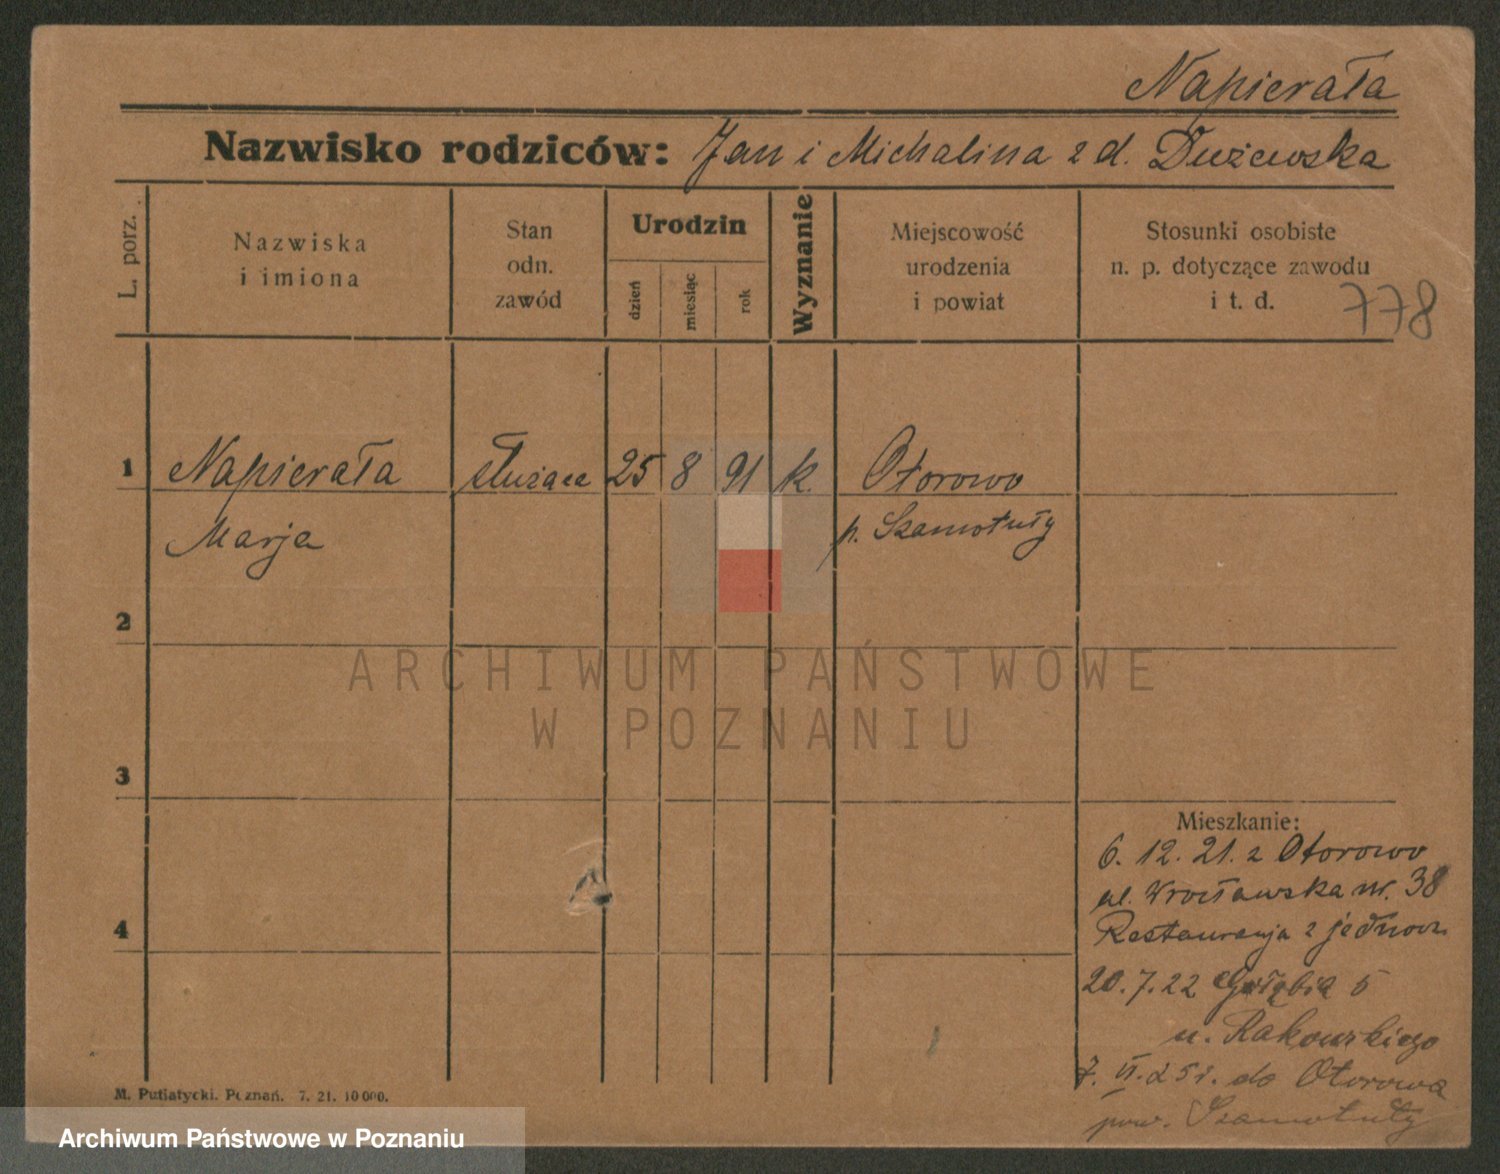 Napierała
Nazwisko rodziców: Jan i Michalina z d. Dużewska
L. porz.
Nazwiska
i imiona
Stan
odn.
zawód
Urodzin
dzień
miesiąc
rok
Wyznanie
Miejscowość
urodzenia
i powiat
Stosunki osobiste
n. p. dotyczące zawodu
i t. d.
778
1 Napierała służąca 25 8 91 k. Otorowo
Marja p. Szamotuły
2
ARCHIWUM PAŃSTWOWE
W POZNANIU
3
Mieszkanie:
6. 12. 21. z Otorowo
ul. Wrocławska nr. 38
Restauracja z
4
20. 7. 22 Gołębia 5
u. Rakowskiego
7. VI. 25 r. do Otorowa
pow. Szamotuły
M. Putiatycki. Poznań. 7. 21. 10000.
Archiwum Państwowe w Poznaniu